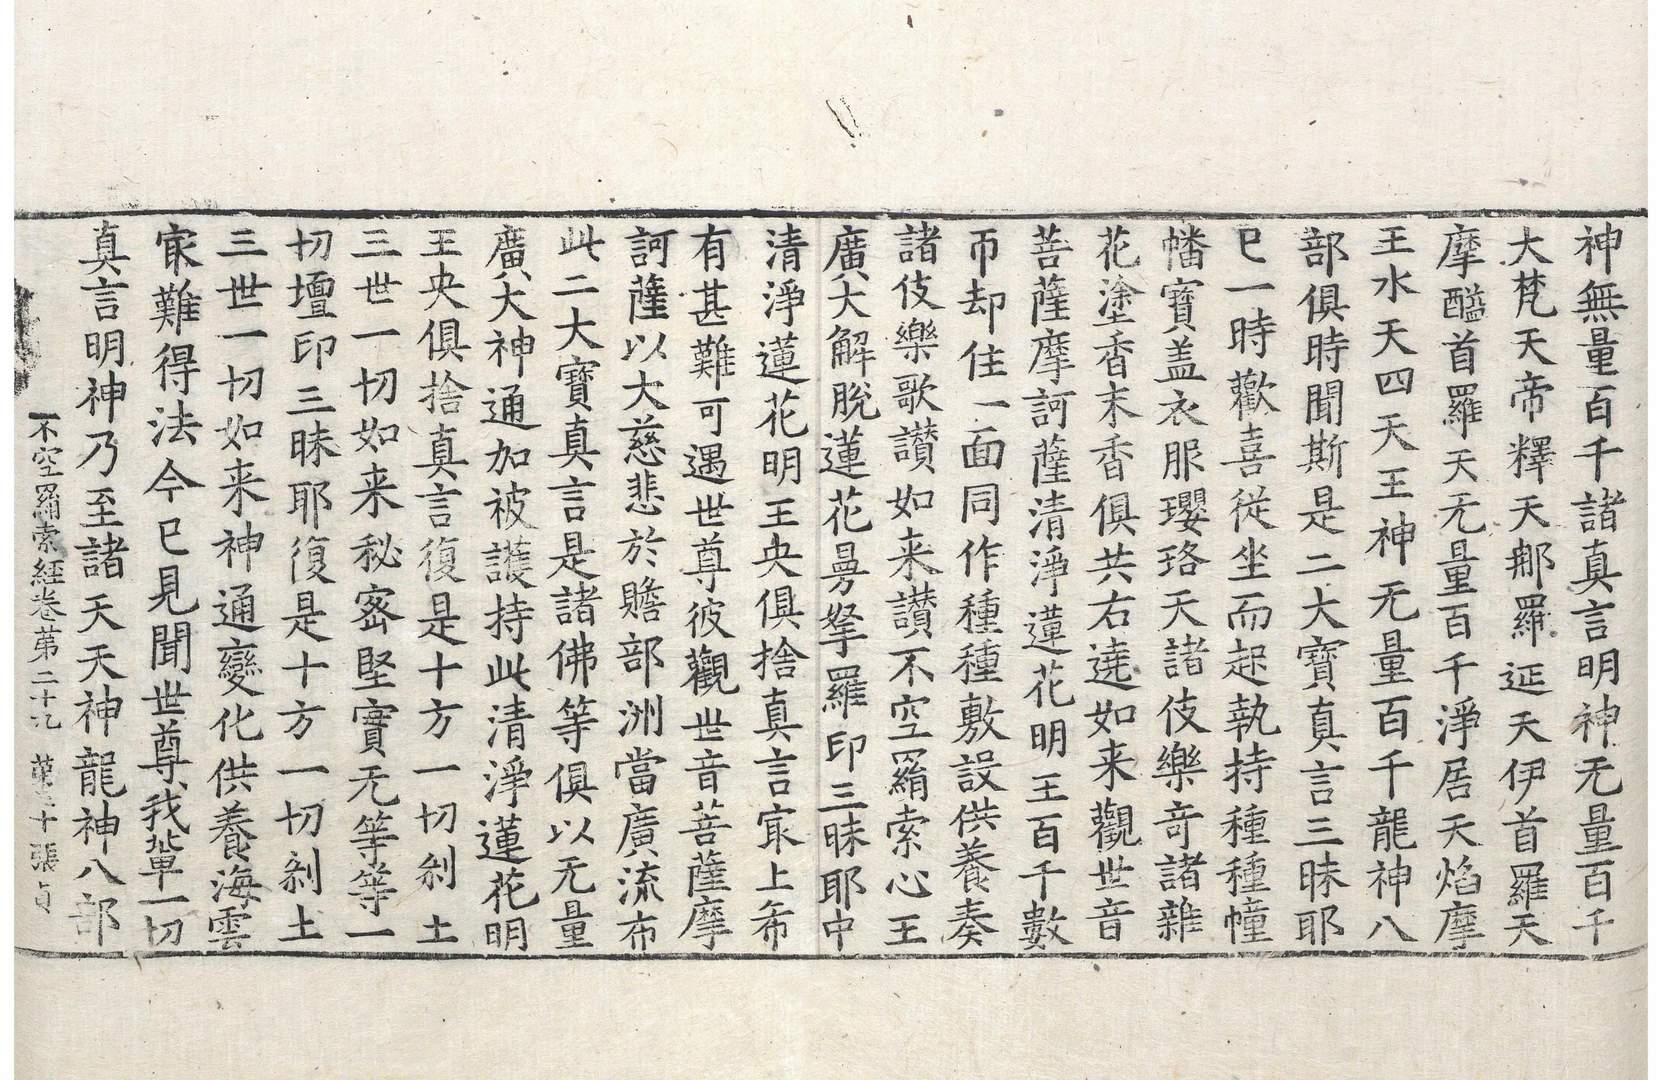 神無量百千諸真言明神无量百千
大梵天帝釋天䣕羅延天伊首羅天
摩醯首羅天无量百千淨居天焰摩
王水天四天王神无量百千龍神八
部俱時聞斯是二大寶真言三昧耶
已一時歡喜從坐而起執持種種幢
幡寶盖衣服瓔珞天諸伎樂奇諸雜
花塗香末香俱共右遶如来觀世音
菩薩摩訶薩清淨蓮花明王百千數
帀却住一面同作種種敷設供養奏
諸伎樂歌讃如来讃不空羂索心王
廣大解脫蓮花曼拏羅印三昧耶中
清淨蓮花明王央俱捨真言㝡上希
有甚難可遇世尊彼觀世音菩薩摩
訶薩以大慈悲於贍部洲當廣流布
此二大寶真言是諸佛等俱以无量
廣大神通加被護持此清淨蓮花明
王央俱捨真言復是十方一切剎土
三世一切如来秘密堅實无等等一
切壇印三昧耶復是十方一切剎土
三世一切如来神通變化供養海雲
㝡難得法今已見聞世尊我輩一切
真言明神乃至諸天天神龍神八部
不空羂索經卷第二十九 張貞